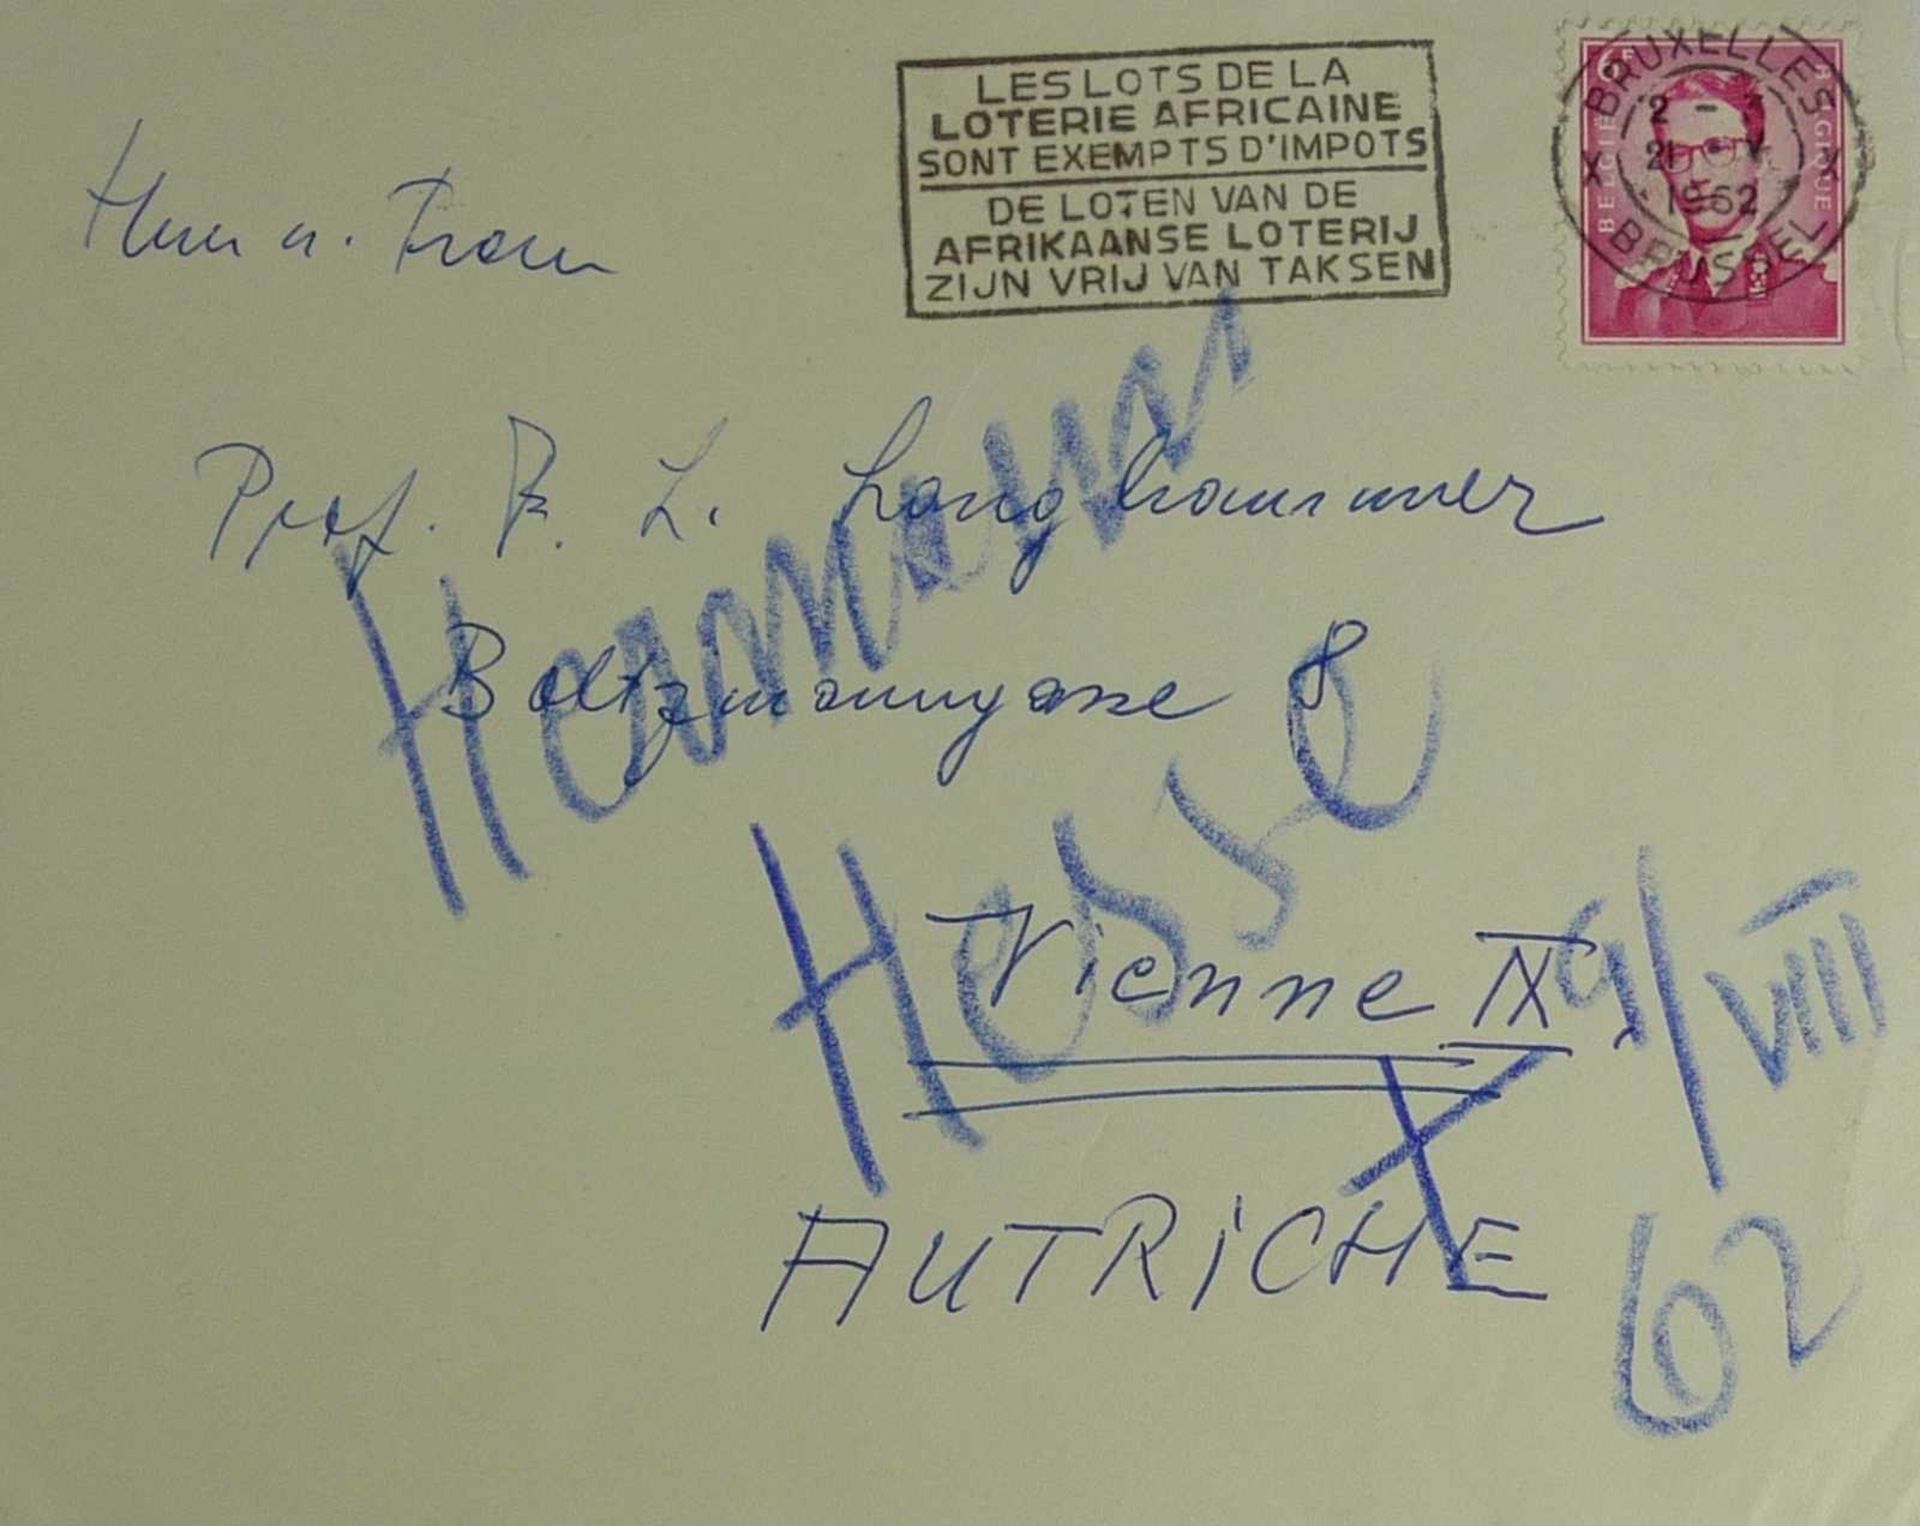 LES LOTS DE LA
LOTERIE AFRICAINE
SONT EXEMPTS D'IMPOTS
DE LOTEN VAN DE
AFRIKAANSE LOTERIJ
ZIJN VRIJ VAN TAKSEN
BRUXELLES
2 - 3
21 • V
1962
BRUSSEL
BELGIE BELGIQUE
Herrn u. Frau
Prof. F. L. Langhammer
Boltzmanngasse 8
Vienne IX
AUTRICHE
Hermann
Hesse
9/VIII
62